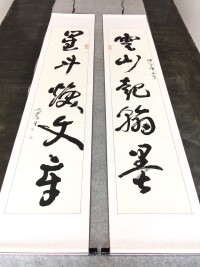 雲山起翰墨
星斗煥文章